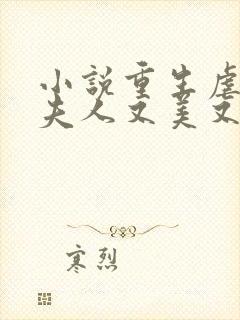 小说重生虐
夫人又美又
寒烈